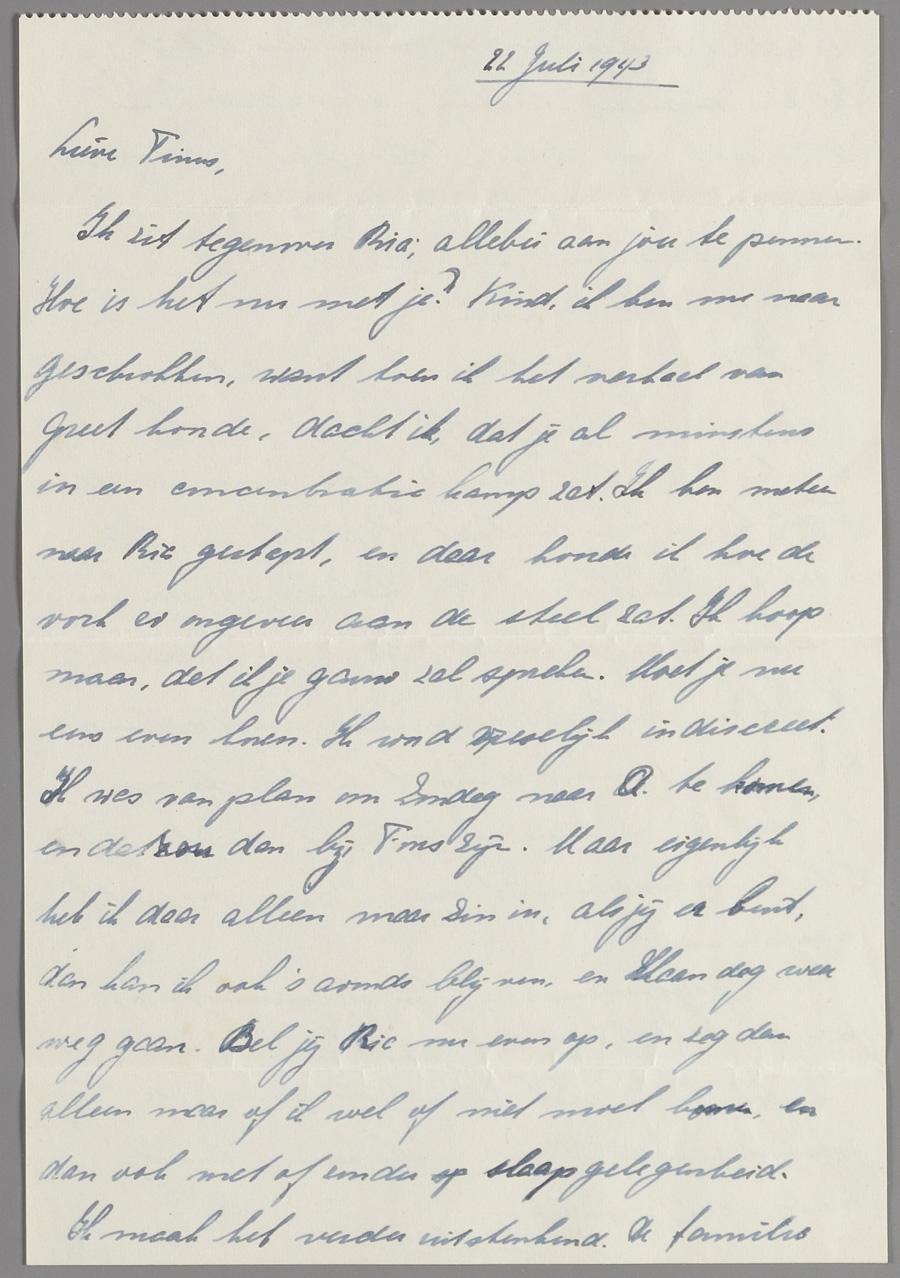 22 Juli 1943
Lieve Tinus,
Ik zit tegenover Ria, allebei aan jou te pennen.
Hoe is het nu met je? Kind, ik ben me naar
geschrokken, want toen ik het verhaal van
Greet hoorde, dacht ik, dat je al minstens
in een concentratie kamp zat. Ik ben meteen
naar Ria gestapt, en daar hoorde ik hoe de
vork er ongeveer aan de steel zat. Ik hoop
maar, dat ik je gauw zal spreken. Moet je nu
eens even horen. Ik word vreselijk indiscreet.
Ik was van plan om Zondag naar A. te komen,
en dat zou dan bij Tms zijn. Maar eigenlijk
heb ik daar alleen maar zin in, als jij er bent,
dan kan ik ook 's avonds blijven, en Maandag weer
weg gaan. Bel jij Ria nu even op, en zeg dan
alleen maar of ik wel of niet moet komen, en
dan ook met of zonder slaapgelegenheid.
Ik maak het verder uitstekend. De familie